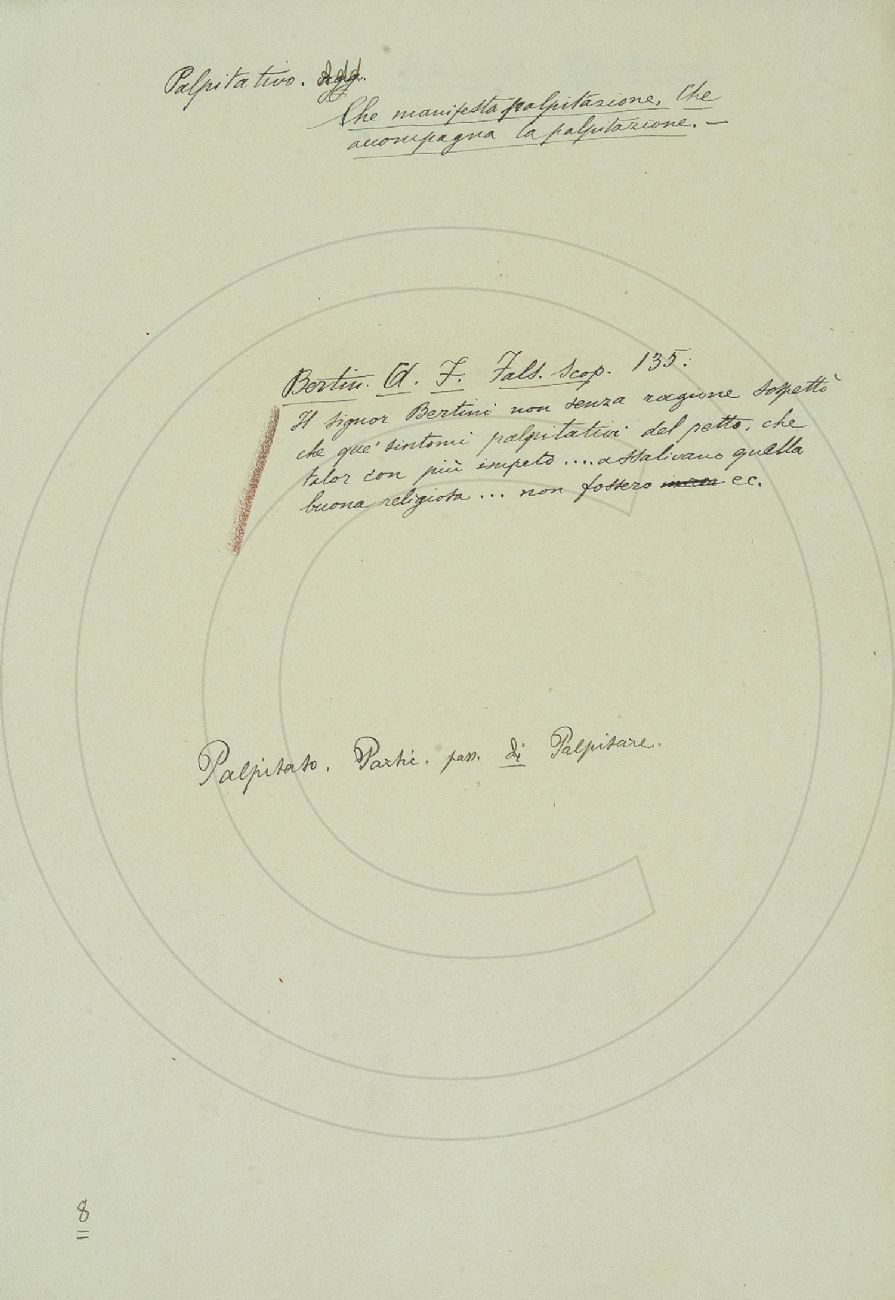 Palpitativo. Agg.
Che manifesta palpitazione, Che
accompagna la palpitazione. —
Bertin. A. F. Fals. Scop. 135:
Il signor Bertini non senza ragione sospettò
che que' sintomi palpitativi del petto, che
talor con più impeto .... assalivano quella
buona religiosa ... non fossero ec.
Palpitato. Partic. pass. di Palpitare.
8